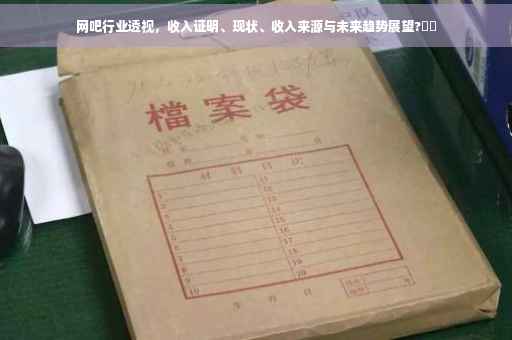 网吧行业透视，收入证明、现状、收入来源与未来趋势展望?
檔案袋
材料目次
1 11
2 12
3 13
4 14
5 15
6 16
7 17
8 18
9 19
10 20
年 月 日